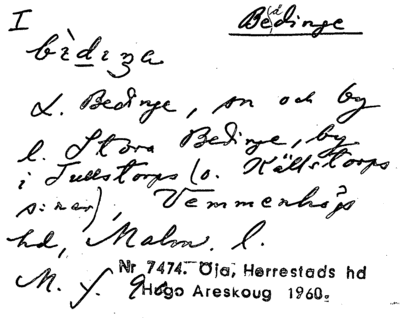 I
Be(d)dinge
bìdiŋa
L. Bedinge, sn och by
l. Stora Bedinge, by
i Tullstorps (o. Källstorps
s:nar), Vemmenhögs
hd, Malm. l.
Nr 7474. Öja, Herrestads hd
M. f. 
Hugo Areskoug 1960.